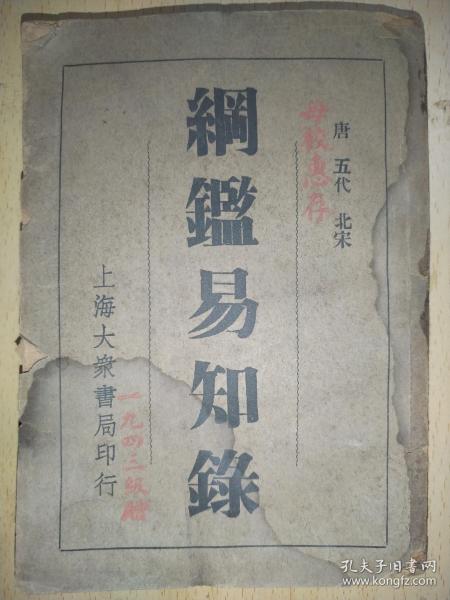 唐 五代 北宋
母校惠存
綱鑑易知錄
上海大衆書局印行
一九四三級贈
孔夫子旧书网
www.kongfz.com